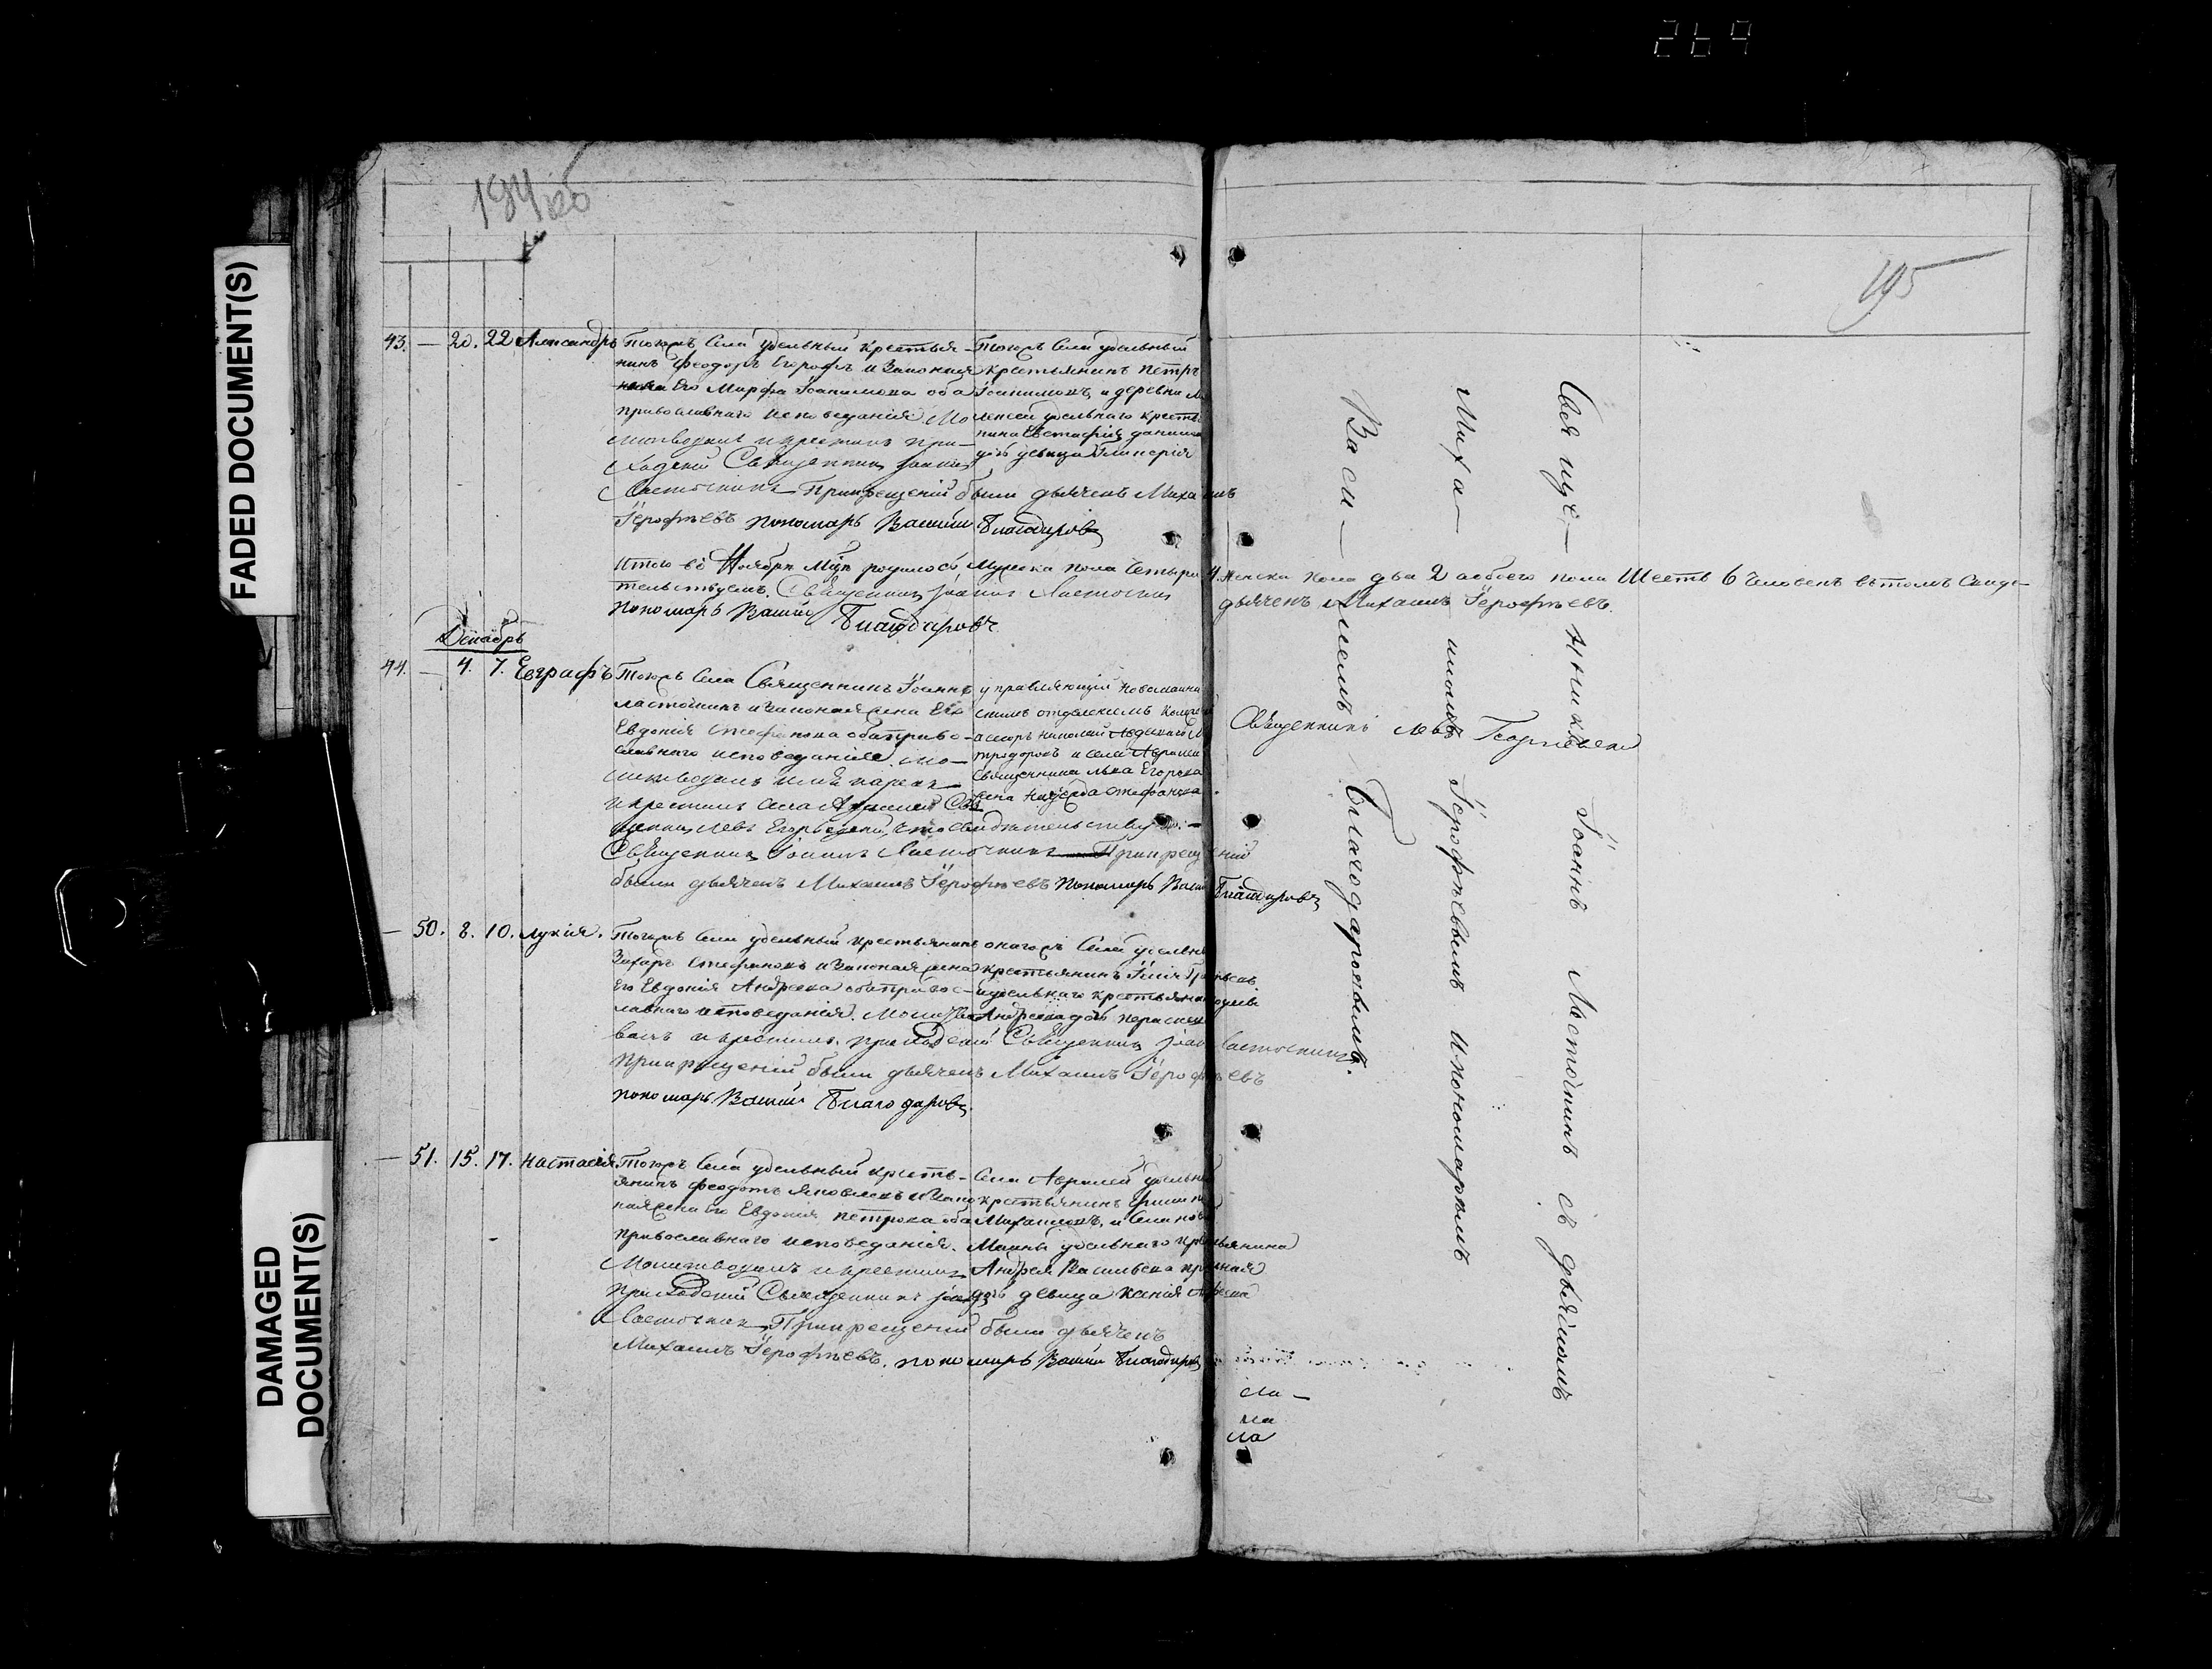 264
FADED DOCUMENT(S)
DAMAGED
DOCUMENT(S)
194 об
195
43. — 20. 22 Александръ
Тогожъ Села удѣльный крестья-
нинъ Феодоръ Егоровъ и законная
жена Его Марфа Іоакимова оба
православнаго исповеданія Мо
литвовалъ и крестилъ при-
ходской Священникъ Іоаннъ
Ласточкинъ При крещеніи были дьячекъ Михаилъ
Іерофѣевъ пономарь Василій Благодаровъ
Тогожъ Села удѣльный
крестьянинъ Петръ
Іоакимовъ, и деревни
удѣльнаго крестья
нина Евстафія
дочь девица Гликерія
Итого въ Ноябрѣ Мцѣ родилось Мужска пола Четыре 4. Женска пола два 2 а обоего пола Шесть 6 человекъ въ томъ Свиде-
тельствуемъ. Священникъ Іоаннъ Ласточкинъ дьячекъ Михаилъ Іерофѣевъ.
пономарь Василій Благодаровъ
Декабрь
44. — 4. 7. Евграфъ
Тогожъ Села Священникъ Іоаннъ
Ласточкинъ и законная жена Его
Евдокія Стефанова оба право-
славнаго исповеданія. мо-
литвовалъ имя нарекъ
и крестилъ села Авралей Свя
щенникъ Левъ Егорьевской, что свидѣтельствую. —
Священникъ Іоаннъ Ласточкинъ При крещеніи
были дьячекъ Михаилъ Іерофѣевъ пономарь Василій Благодаровъ
управляющій Новомаинскимъ
отделеніемъ
ассоръ Николай
и села Авралей
Священника Льва Егорова
жена Надежда Стефанова.
Священникъ Левъ Георгіевской
— 50. 8. 10. Лукія.
Тогожъ Села удѣльный крестьянинъ
Захаръ Стефановъ и законная жена
Его Евдокія Андреева оба правос-
лавнаго исповеданія. Молитво
валъ и крестилъ приходской Священникъ Іоаннъ Ласточкинъ.
При крещеніи были дьячекъ Михаилъ Іерофѣевъ
пономарь Василій Благодаровъ.
онагожъ Села удѣльный
крестьянинъ Илія
и удѣльнаго крестьянина
Андреева дочь
— 51. 15. 17. Настасія
Тогожъ Села удѣльный кресть-
янинъ Феодотъ Яковлевъ и закон
ная жена Его Евдокія Петрова оба
православнаго исповеданія.
Молитвовалъ и крестилъ
приходской Священникъ Іоаннъ
Ласточкинъ При крещеніи были дьячекъ
Михаилъ Іерофѣевъ. пономарь Василій Благодаровъ
Села Авралей удѣльный
крестьянинъ
Михайловъ, и Села Новой
Маины удѣльнаго крестьянина
Андрея Васильева
дочь девица Ксенія
Свя щен- никъ Іоаннъ Ласточкинъ съ дьячкомъ
Миха- иломъ Іерофѣевымъ и пономаремъ
Васи- ліемъ Благодаровымъ.